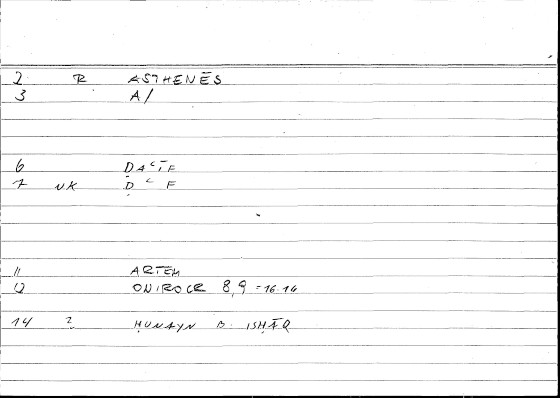 2 R ASTHENĒS
3 A/
6 ḌAʿĪF
7 NK Ḍ ʿ F
11 ARTEM
12 ONIROCR 8,9 = 16.14
14 2 ḤUNAYN B. ISḤĀQ